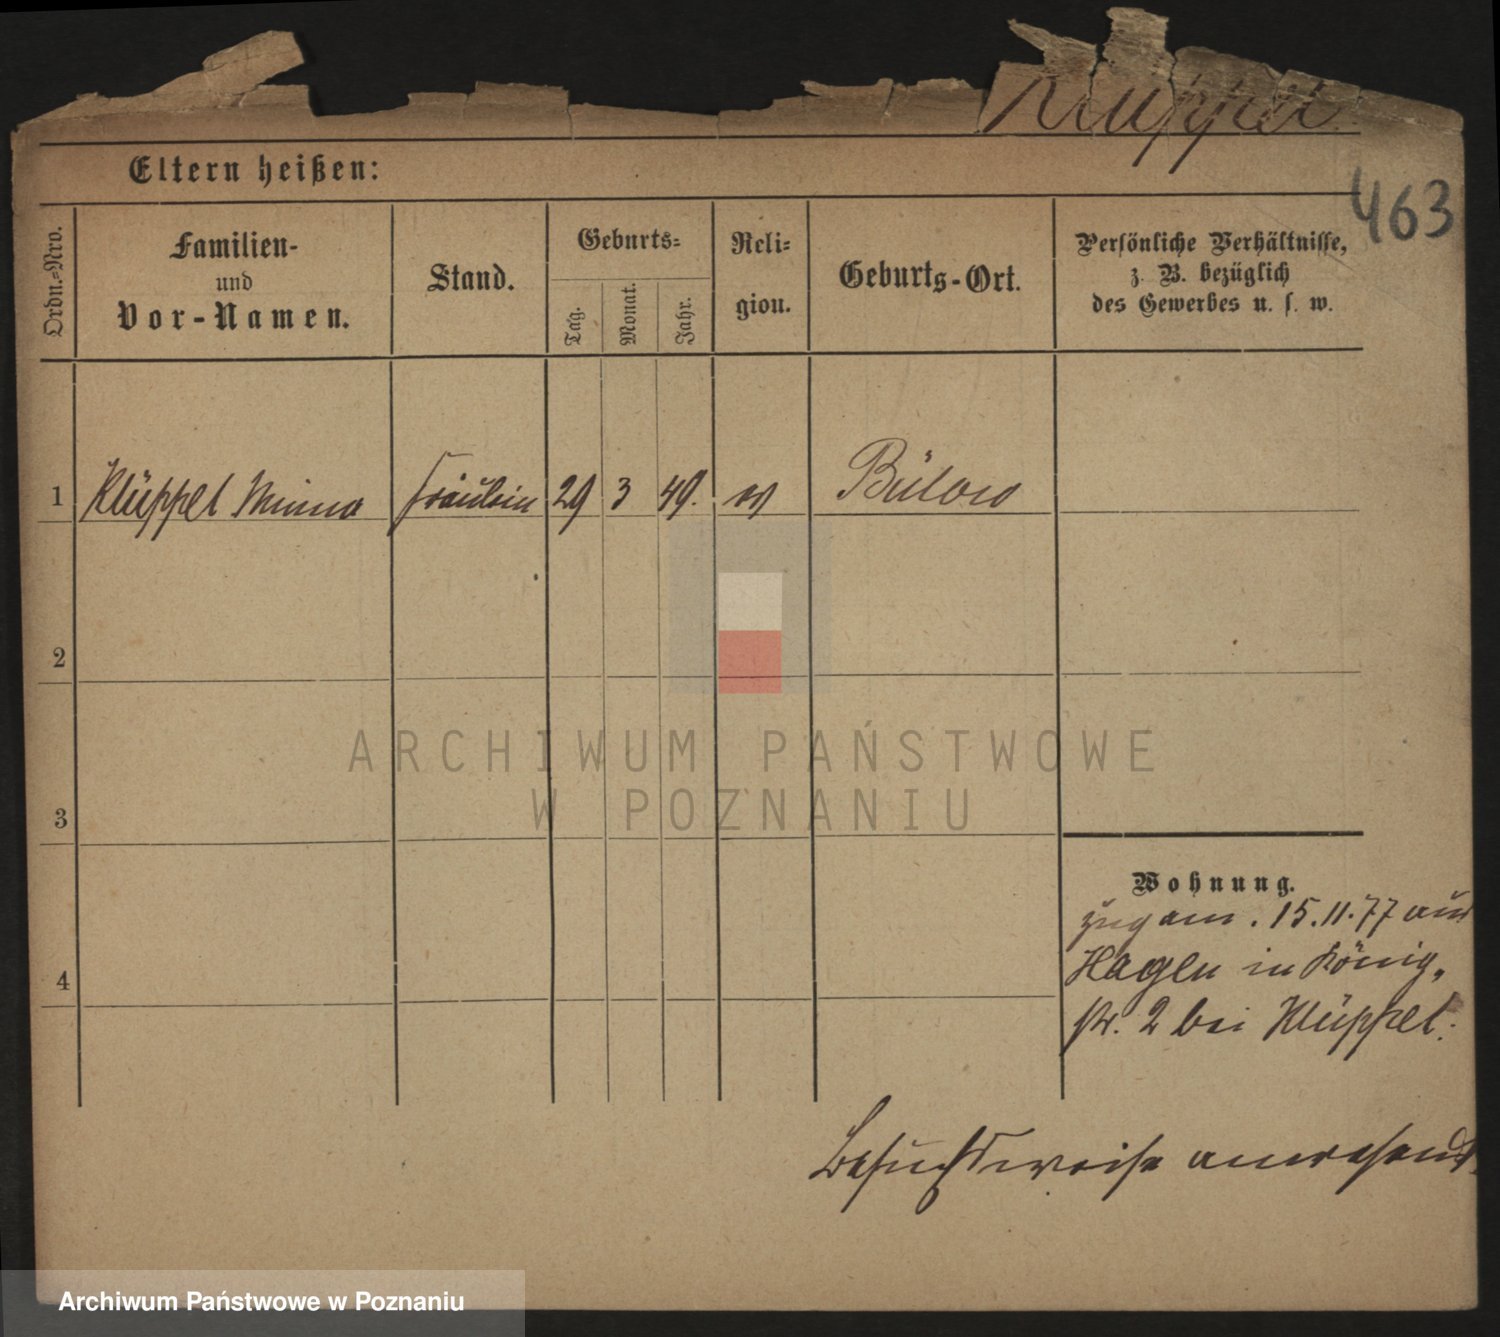 Klüppel
463
Eltern heißen:
Ordn.=Nro.
Familien-
und
Vor-Namen.
Stand.
Geburts=
Tag.
Monat.
Jahr.
Reli=
gion.
Geburts-Ort.
Persönliche Verhältnisse,
z. B. bezüglich
des Gewerbes u. s. w.
1 Klüppel Minna Fräulein 29 3 49. ev Bülow
2
3
4
Wohnung.
zug am . 15.11.77 aus
Hagen in König„
str. 2 bei Klüppel.
Besuchsweise anwesend.
ARCHIWUM PAŃSTWOWE
W POZNANIU
Archiwum Państwowe w Poznaniu